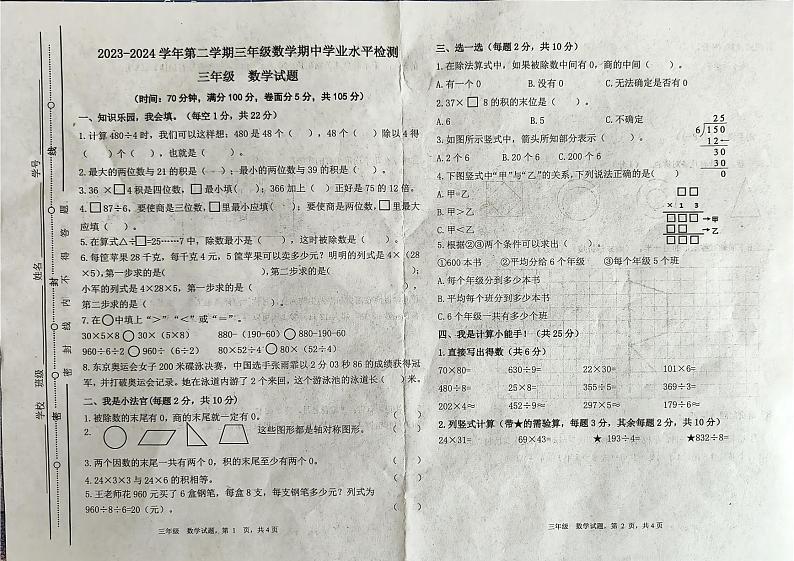 2023-2024 学年第二学期三年级数学期中学业水平检测
三年级 数学试题
（时间：70 分钟，满分 100 分，卷面分 5 分，共 105 分）
一、知识乐园，我会填。（每空 1 分，共 22 分）
1.计算 480÷4 时，我们可以这样想：480 是 48 个（ ），48 个（ ）除以 4 得
（ ）个（ ），也就是（ ）。
2.最大的两位数与 21 的积是（ ）；最小的两位数与 39 的积是（ ）。
3.36 ×□4 积是四位数，□最小填（ ）；366 加上（ ）正好是 75 的 12 倍。
4.□87÷6，要使商是三位数，□里最小应填（ ）；要使商是两位数，□里最大
应填（ ）。
5.在算式△÷□=25……7 中，除数最小是（ ），这时被除数是（ ）。
6.每筐苹果 28 千克，每千克 4 元，5 筐苹果可以卖多少元？明明的列式是 4×（28
×5），第一步求的是（ ），第二步求的是（ ）；
小军的列式是 4×28×5，第一步求的是（ ），
第二步求的是（ ）。
7.在○中填上“＞”“＜”或“＝”。
30×5×8○30×（5×8） 880-(190-60)○880-190-60
960÷6÷2○960÷（6÷2） 80×52÷4○80×（52÷4）
8.东京奥运会女子 200 米蝶泳决赛，中国选手张雨霏以 2 分 03 秒 86 的成绩获得冠
军，并打破奥运会记录。她在泳道内游了 2 个来回，这个游泳池的泳道长（ ）米。
二、我是小法官(每题 2 分，共 10 分)
1.被除数的末尾有 0，商的末尾就一定有 0。（ ）
2. 这些图形都是轴对称图形。（ ）
3.两个因数的末尾一共有两个 0，积的末尾至少有两个 0。（ ）
4.24×3×3 与 24×6 的积相等。（ ）
5.王老师花 960 元买了 6 盒钢笔，每盒 8 支，每支钢笔多少元？列式为
960÷8÷6=20（元）。（ ）
三年级 数学试题，第 1 页，共 4 页
学校 班级 姓名 学号
密 封 线 内 不 得 答 题
密 封 线
三、选一选（每题 2 分，共 10 分）
1.在除法算式中，如果被除数中间有 0，商的中间（ ）。
A.有一个 0 B.没有 0 C.无法确定是否有 0
2.37×□8 的积的末位是（ ）。
A.6 B.5 C.不确定
3.如图所示竖式中，箭头所知部分表示（ ）。
A.2 个 6 B.20 个 6 C.200 个 6
25
6）150
12←
30
30
0
4.下图竖式中“甲”与“乙”的关系，下列说法正确的是（ ）
A.甲=乙
B.甲＞乙
C.甲＜乙
□□
× 1 3
□□□→甲
□□→乙
□□□
5.根据②③两个条件可以求出（ ）。
①600 本书 ②平均分给 6 个年级 ③每个年级 5 个班
A.每个年级分到多少本书
B.平均每个班分到多少本书
C.6 个年级一共有多少个班
四、我是计算小能手！（共 25 分）
1.直接写出得数（共 6 分）
70×80= 630÷9= 22×30= 101×6=
480÷8= 25×8= 355÷5= 369÷3=
202×4≈ 452÷9≈ 297×5≈ 179÷6≈
2.列竖式计算（带★的需验算，每题 3 分，其余每题 2 分，共 10 分）
24×31= 69×43= ★ 193÷4= ★832÷8=
三年级 数学试题，第 2 页，共 4 页